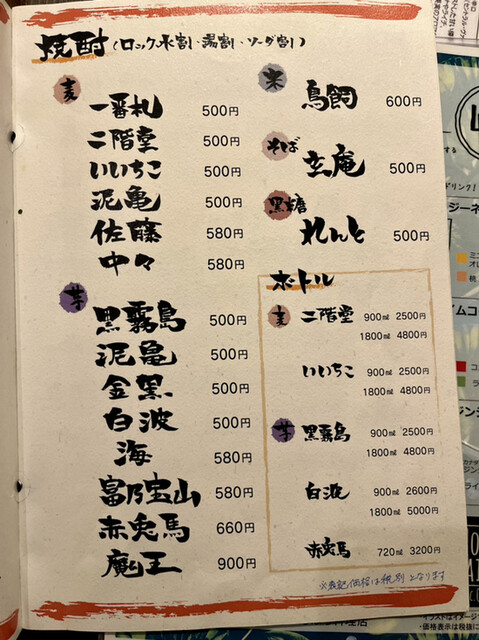 焼酎(ロック・水割・湯割・ソーダ割)
麦
一番札 500円
二階堂 500円
いいちこ 500円
泥亀 500円
佐藤 580円
中々 580円
芋
黒霧島 500円
泥亀 500円
金黒 500円
白波 500円
海 580円
富乃宝山 580円
赤兎馬 660円
魔王 900円
米
鳥飼 600円
そば
玄庵 500円
黒糖
れんと 500円
ボトル
麦 二階堂 900㎖ 2500円
1800㎖ 4800円
いいちこ 900㎖ 2500円
1800㎖ 4800円
芋 黒霧島 900㎖ 2500円
1800㎖ 4800円
白波 900㎖ 2600円
1800㎖ 5000円
赤兎馬 720㎖ 3200円
※表記価格は税別となります
イラストはイメージ
・価格表示は税抜に